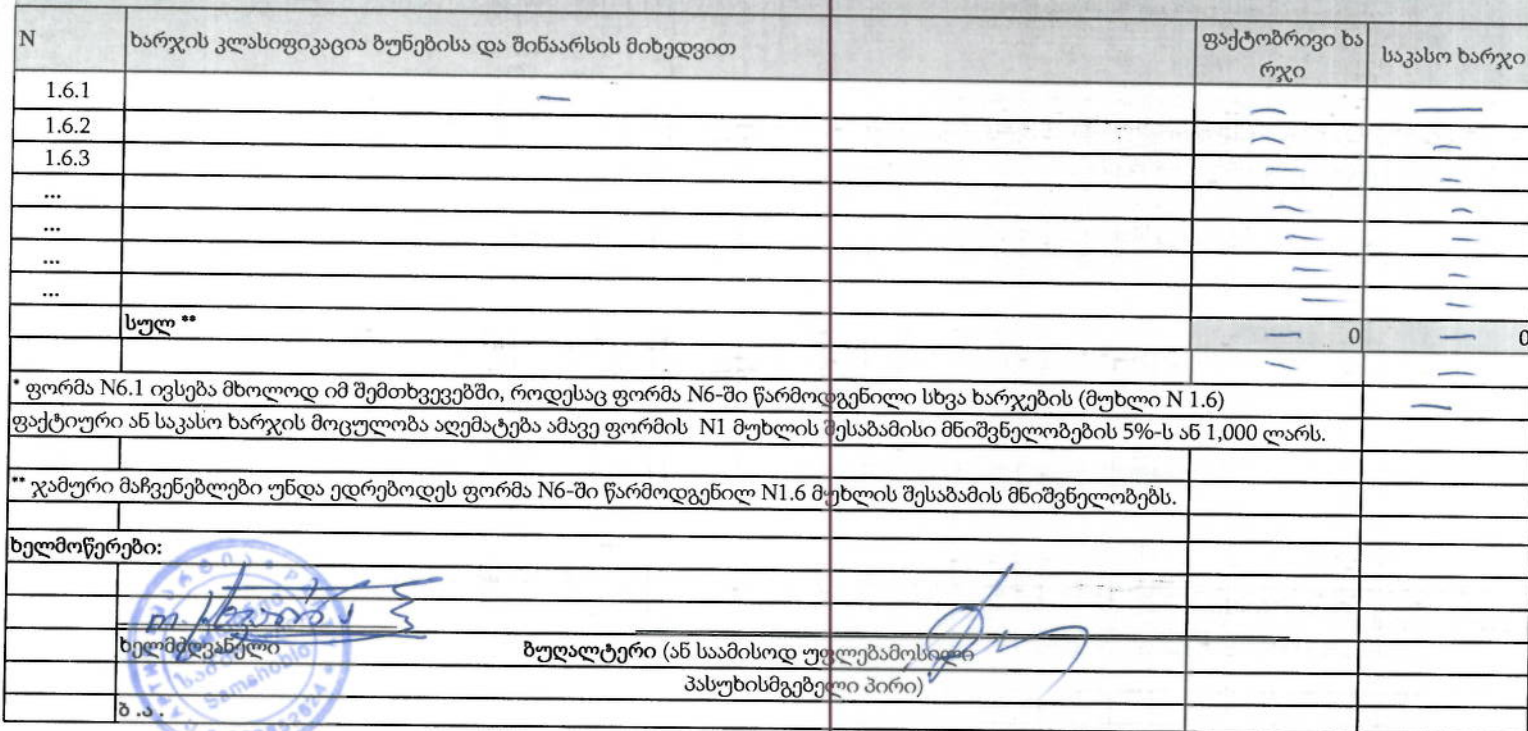 N ხარჯის კლასიფიკაცია ბუნებისა და შინაარსის მიხედვით ფაქტობრივი ხა რჯი საკასო ხარჯი
1.6.1 — — —
1.6.2 — —
1.6.3 — —
... — —
... — —
... — —
... — —
სულ ** — 0 — 0
— —
* ფორმა N6.1 ივსება მხოლოდ იმ შემთხვევებში, როდესაც ფორმა N6-ში წარმოდგენილი სხვა ხარჯების (მუხლი N 1.6) —
ფაქტიური ან საკასო ხარჯის მოცულობა აღემატება ამავე ფორმის N1 მუხლის შესაბამისი მნიშვნელობების 5%-ს ან 1,000 ლარს.
** ჯამური მაჩვენებლები უნდა ედრებოდეს ფორმა N6-ში წარმოდგენილ N1.6 მუხლის შესაბამის მნიშვნელობებს.
ხელმოწერები:
ხელმძღვანელი ბუღალტერი (ან საამისოდ უფლებამოსილი
პასუხისმგებელი პირი)
ბ .ა .
Samshoblo